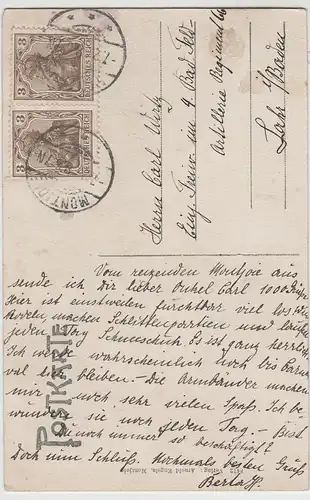 3
DEUTSCHES REICH
3
DEUTSCHES REICH
MONTJOIE
Herrn Carl Wirtz
Einj. Freiw. im 9 Bad. Feld-
Artillerie Regiment 66
Lahr i/Baden
POSTKARTE
Verlag Arnold
Montjoie
Vom reizenden Montjoie aus
sende ich Dir lieber Onkel Carl 1000 Grüße
Hier ist einstweilen furchtbar viel los Wir
rodeln machen Schlittenpartien und laufen
jeden Tag Schneeschuh. Es ist ganz herrlich
Ich werde wahrscheinlich noch bis Carne
val hier bleiben. – Die Armbänder machen
mir noch sehr vielen Spaß. Ich be
wundere sie noch jeden Tag. – Bist
Du noch immer so beschäftigt?
Doch nun Schluß. Nochmals besten Gruß
Berta